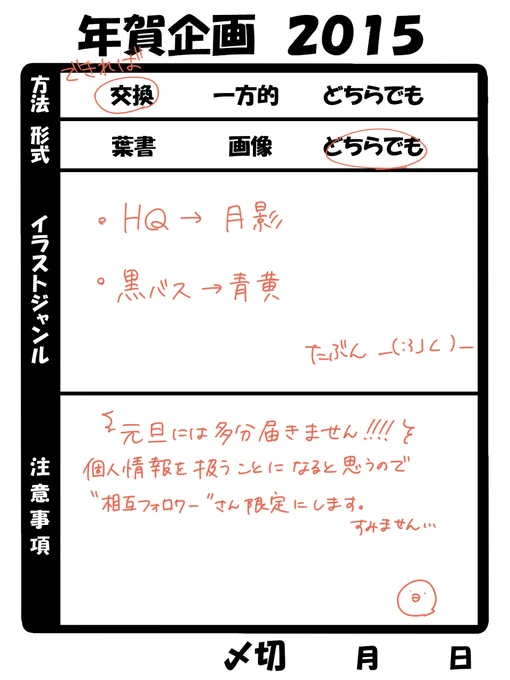 年賀企画 2015
できれば
方法 交換 一方的 どちらでも
形式 葉書 画像 どちらでも
イラストジャンル
・HQ→月影
・黒バス→青黄
たぶん _(:3」∠)_
注意事項
元旦には多分届きません!!!!と
個人情報を扱うことになると思うので
"相互フォロワー"さん限定にします。
すみません…
〆切 月 日